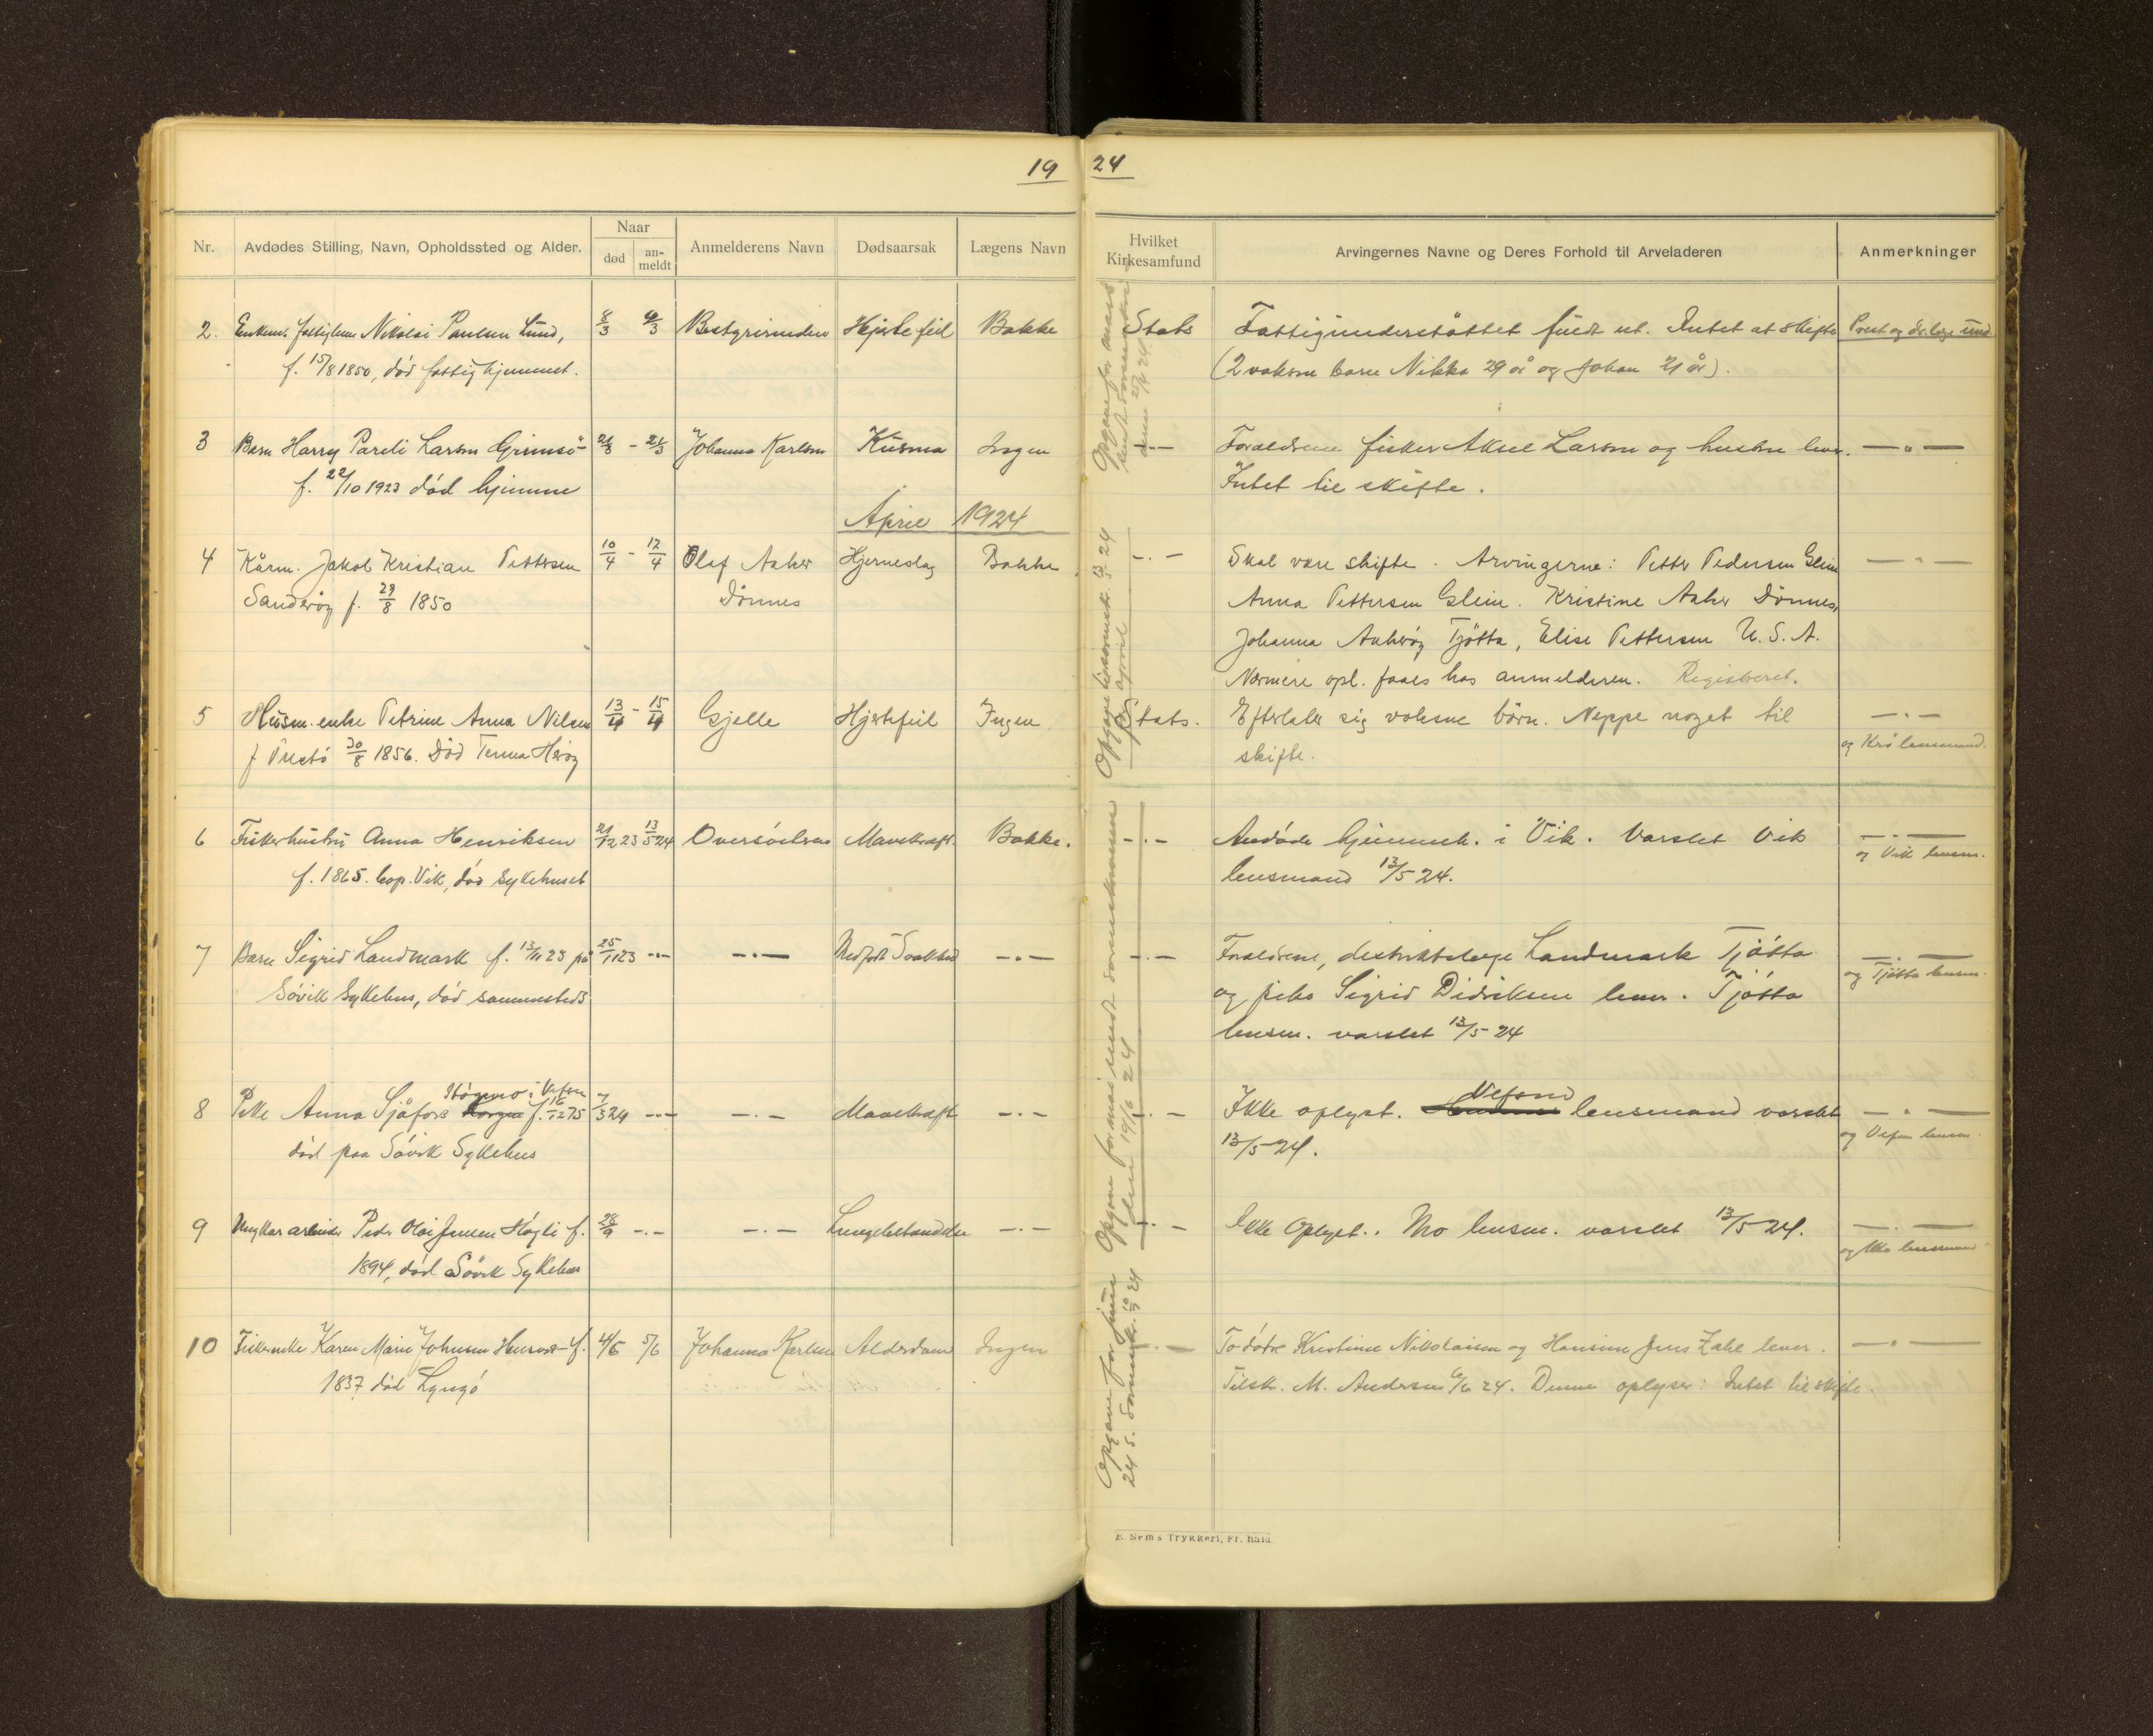 19 24
Nr. Avdødes Stilling, Navn, Opholdssted og Alder. Naar død an-meldt Anmelderens Navn Dødsaarsak Lægens Navn Hvilket Kirkesamfund Arvingernes Navne og Deres Forhold til Arveladeren Anmerkninger
2. Enkem. Nikolai Paulsen Lund, 8/3 9/3 Bestyrerinden Hjertefeil Bakke Stats Fattigunderstøttet fuldt ut. Intet at skifte Prest og ds.læge und.
f. 15/8 1850, død fattighjemmet. (2 voksne barn Nikka 29 år og Johan 21 år).
3 Barn Harry Pareli Larsen Grimsö 21/3 - 21/3 Johanna Karlsen Kusma Ingen -"- Forældrene fisker Aksel Larsen og hustru lever. -"-
f. 22/10 1923 död hjemme Intet til skifte.
April 1924
4 Kårm. Jakob Kristian Pettersen 10/4 - 12/4 Olaf Aaker Hjerneslag Bakke -.- Skal være skifte. Arvingerne: Petter Pedersen Glein -"-
Sanderöy f. 29/8 1850 Dönnes Anna Pettersen Glein. Kristine Aaker Dönnes
Johanna Tjötta, Elise Pettersen U.S.A.
Nærmere opl. faaes hos anmelderen. Registreret.
5 Husm. enke Petrine Anna Nilsen 13/4 - 15/4 Gjelle Hjertefeil Ingen Stats. Efterlater sig voksne börn. Neppe noget til -"-
f 30/8 1856. Död Tenna Heröy skifte. og lensmand.
6 Fiskerhustru Anna Henriksen 21/12 23 13/5 24 Oversösteren Mavekræft. Bakke. -.- Avdøde hjemmeh. i Vik. Varslet Vik -.-
f. 1865. bop. Vik, död sykehuset lensmand 13/5 24. og Vik lensm.
7 Barn Sigrid Landmark f. 13/11 23 på 25/11 23 -.- -.- Medfødt Svakhed -.- -.- Forældrene, distriktslæge Landmark Tjötta -.-
Sövik Sykehus, död sammesteds og frk. Sigrid Didriksen lever. Tjötta og Tjötta lensm.
lensm. varslet 13/5 24
8 Pike Anna Sjåfors i Vefsn f. 16/12 75 7/3 24 -.- -.- Mavekræft -.- -.- Ikke oplyst. Vefsn lensmand varslet -.-
död paa Sövik Sykehus 13/5 24. og Vefsn lensm.
9 Ungkar arbeider Peder Olai Jensen Högli f. 28/9 -.- -.- Lungebetændelse -.- -.- Ikke Oplyst. Mo lensm. varslet 13/5 24. -.-
1894, död Sövik Sykehus og Mo lensmand
10 Fiskerenke Karen Marie Johnsen f. 4/6 5/6 Johanna Karlsen Alderdom Ingen -.- To dötre Kristine Nikolaisen og Hansine Jens Zahl lever. -.-
1837 död Lyngö Tilsk. M. Andersen 6/6 24. Denne oplyser: Intet til skifte.
Opgave for mars sendt sorenskriveren 24
Opgave til sorenskr. 13/5 24 for april
Opgave for mai sendt sorenskriveren 19/6 24
Opgave for juni 24 s. sorensk. 24
E. Sem's Trykkeri, Fr.hald